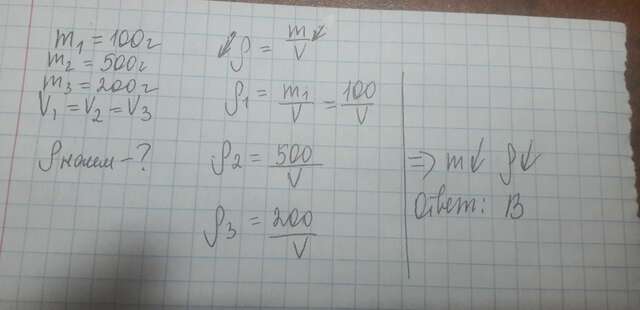 m₁ = 100г
m₂ = 500г
m₃ = 200г
V₁ = V₂ = V₃
ρ наим - ?
↓ρ = m↓/V
ρ₁ = m₁/V = 100/V
ρ₂ = 500/V
ρ₃ = 200/V
=> m↓ ρ↓
Ответ: В